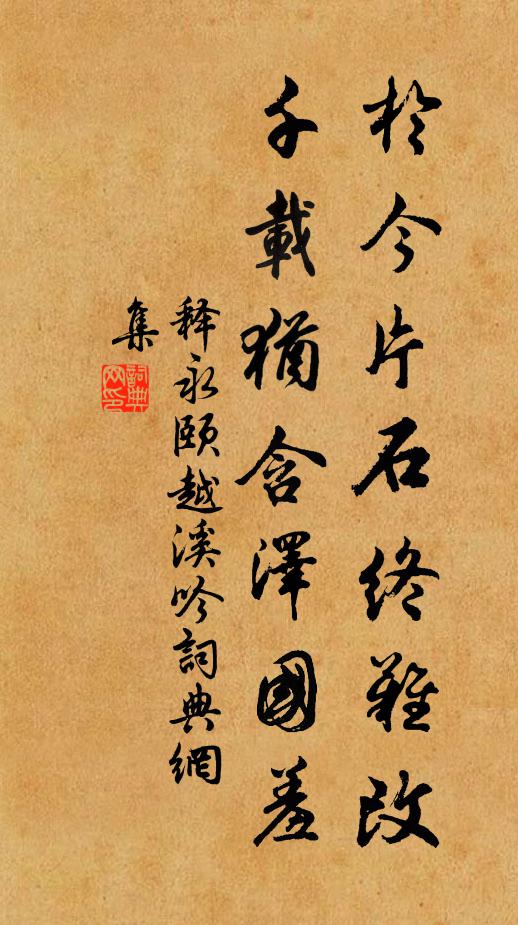 於今片石終難改
千載猶含澤國羞
释永頤越溪吟詞典網
集
詞典網印